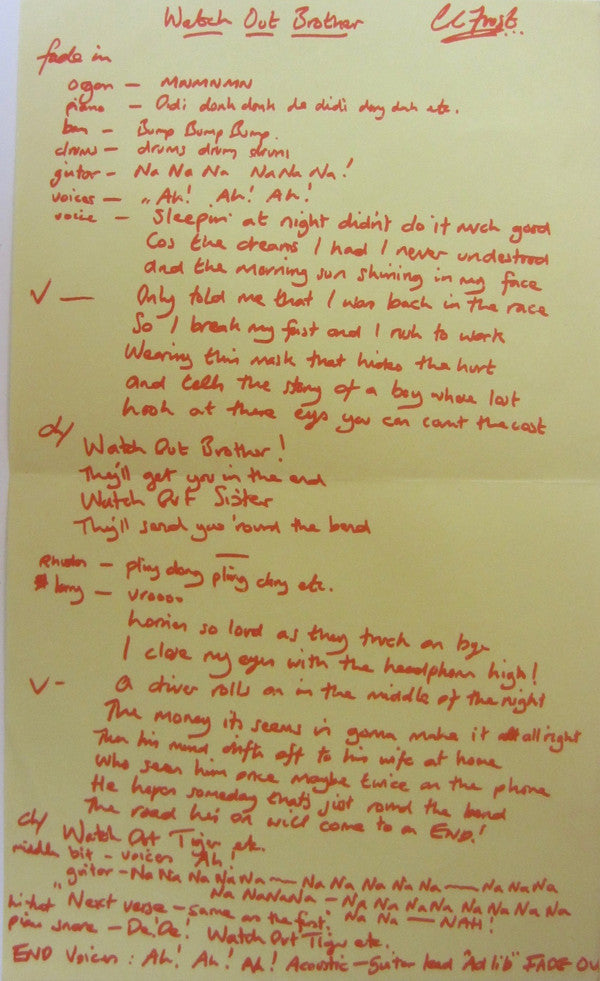 Watch Out Brother CC Frost
fade in
organ — MNMNMNMN
piano — Didi donk donk de didi dong dunk etc.
bass — Bump Bump Bump.
drums — drums drums drums
guitar — Na Na Na Na Na Na!
voices — "Ah! Ah! Ah!
voice — Sleepin' at night didn't do it much good
Cos the dreams I had I never understood
and the morning sun shining in my face
V — Only told me that I was back in the race
So I break my fast and I rush to work
Wearing this mask that hides the hurt
and tells the story of a boy whose lost
Look at these eyes you can count the cost
ch/ Watch Out Brother!
They'll get you in the end
Watch Out Sister
They'll send you 'round the bend
Rhodes — pling dong pling dong etc.
lorry — vroooo
Lorries so loud as they truck on by
I close my eyes with the headphones high!
V - A driver rolls on in the middle of the night
The money its seems is gonna make it all right
Then his mind drifts off to his wife at home
Who sees him once maybe twice on the phone
He hopes someday that's just round the bend
The road he's on will come to an END!
ch/ Watch Out Tiger etc.
middle bit - voices Ah!
" guitar - Na Na Na Na Na — Na Na Na Na Na — Na Na Na
Na NaNaNa - Na Na Na Na Na Na Na Na
hi-hat Next verse - same as the first. Na Na — NAH!
plus snare - De! De! Watch Out Tiger etc.
END Voices : Ah! Ah! Ah! Acoustic - guitar lead "Ad lib" FADE OU